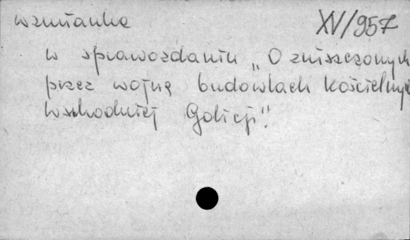 wzmianka XV/957
w sprawozdaniu „O zniszczonych
przez wojnę budowlach kościelnych
wschodniej Galicji".